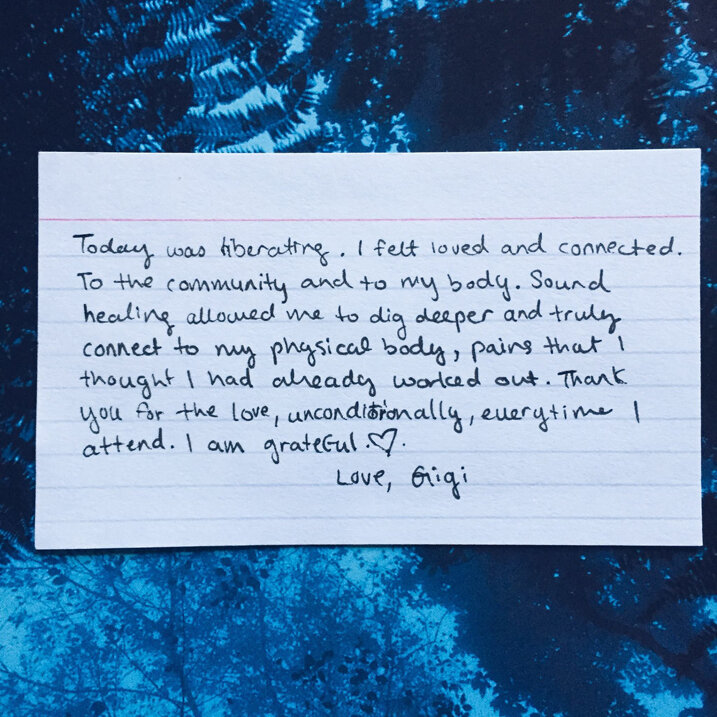 Today was liberating. I felt loved and connected.
To the community and to my body. Sound
healing allowed me to dig deeper and truly
connect to my physical body, pains that I
thought I had already worked out. Thank
you for the love, unconditionally, everytime I
attend. I am grateful ♡.
Love, Gigi